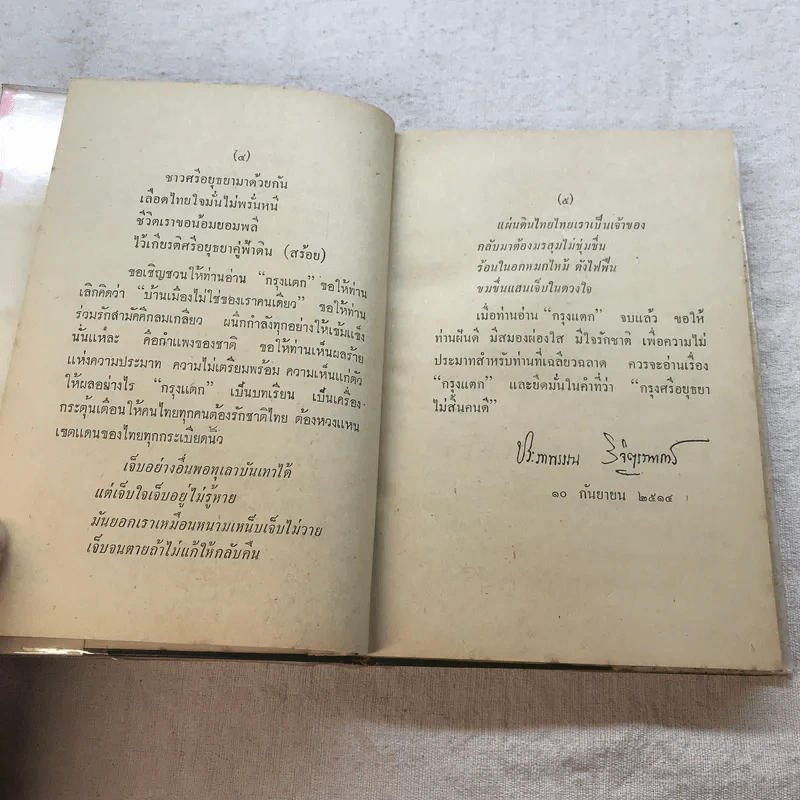 (๔)
ชาวศรีอยุธยามาด้วยกัน
เลือดไทยใจมั่นไม่พรั่นหนี
ชีวิตเราขอน้อมยอมพลี
ไว้เกียรติศรีอยุธยาคู่ฟ้าดิน (สร้อย)
ขอเชิญชวนให้ท่านอ่าน “กรุงแตก” ขอให้ท่าน
เลิกคิดว่า “บ้านเมืองไม่ใช่ของเราคนเดียว” ขอให้ท่าน
ร่วมรักสามัคคีกลมเกลียว ผนึกกำลังทุกอย่างให้เข้มแข็ง
นั่นแหละ คือกำแพงของชาติ ขอให้ท่านเห็นผลร้าย
แห่งความประมาท ความไม่เตรียมพร้อม ความเห็นแก่ตัว
ให้ผลอย่างไร “กรุงแตก” เป็นบทเรียน เป็นเครื่อง
กระตุ้นเตือนให้คนไทยทุกคนต้องรักชาติไทย ต้องหวงแหน
เขตแดนของไทยทุกกระเบียดนิ้ว
เจ็บอย่างอื่นพอทุเลาบันเทาได้
แต่เจ็บใจเจ็บอยู่ไม่รู้หาย
มันยอกเราเหมือนหนามเหน็บเจ็บไม่วาย
เจ็บจนตายถ้าไม่แก้ให้กลับคืน
(๕)
แผ่นดินไทยไทยเราเป็นเจ้าของ
กลับมาต้องมรสุมไม่ชุ่มชื่น
ร้อนในอกหมกไหม้ ดังไฟฟืน
ขมขื่นแสนเจ็บในดวงใจ
เมื่อท่านอ่าน “กรุงแตก” จบแล้ว ขอให้
ท่านฝันดี มีสมองผ่องใส มีใจรักชาติ เพื่อความไม่
ประมาทสำหรับท่านที่เฉลียวฉลาด ควรจะอ่านเรื่อง
“กรุงแตก” และยึดมั่นในคำที่ว่า “กรุงศรีอยุธยา
ไม่สิ้นคนดี”
ประภาพรรณ วิจิตรวาทการ
๑๐ กันยายน ๒๕๑๔